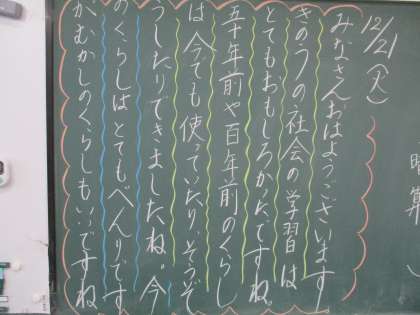 12/21(火)
みなさんおはようございます
きのうの社会の学習は
とてもおもしろかたですね。
五十年前や百年前のくらし
は今でも使っていたり、そうぞ
うしたりできましたね。今
のくらしはとてもべんりです
がむかしのくらしもいいですね